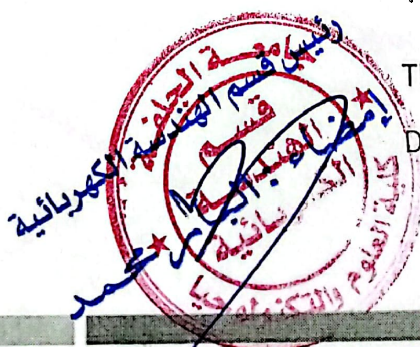 رئيس قسم الهندسة الكهربائية
إمضاء: محمد
جامعة الجلفة
قسم
الهندسة
الكهربائية
كلية العلوم والتكنولوجيا
T
D